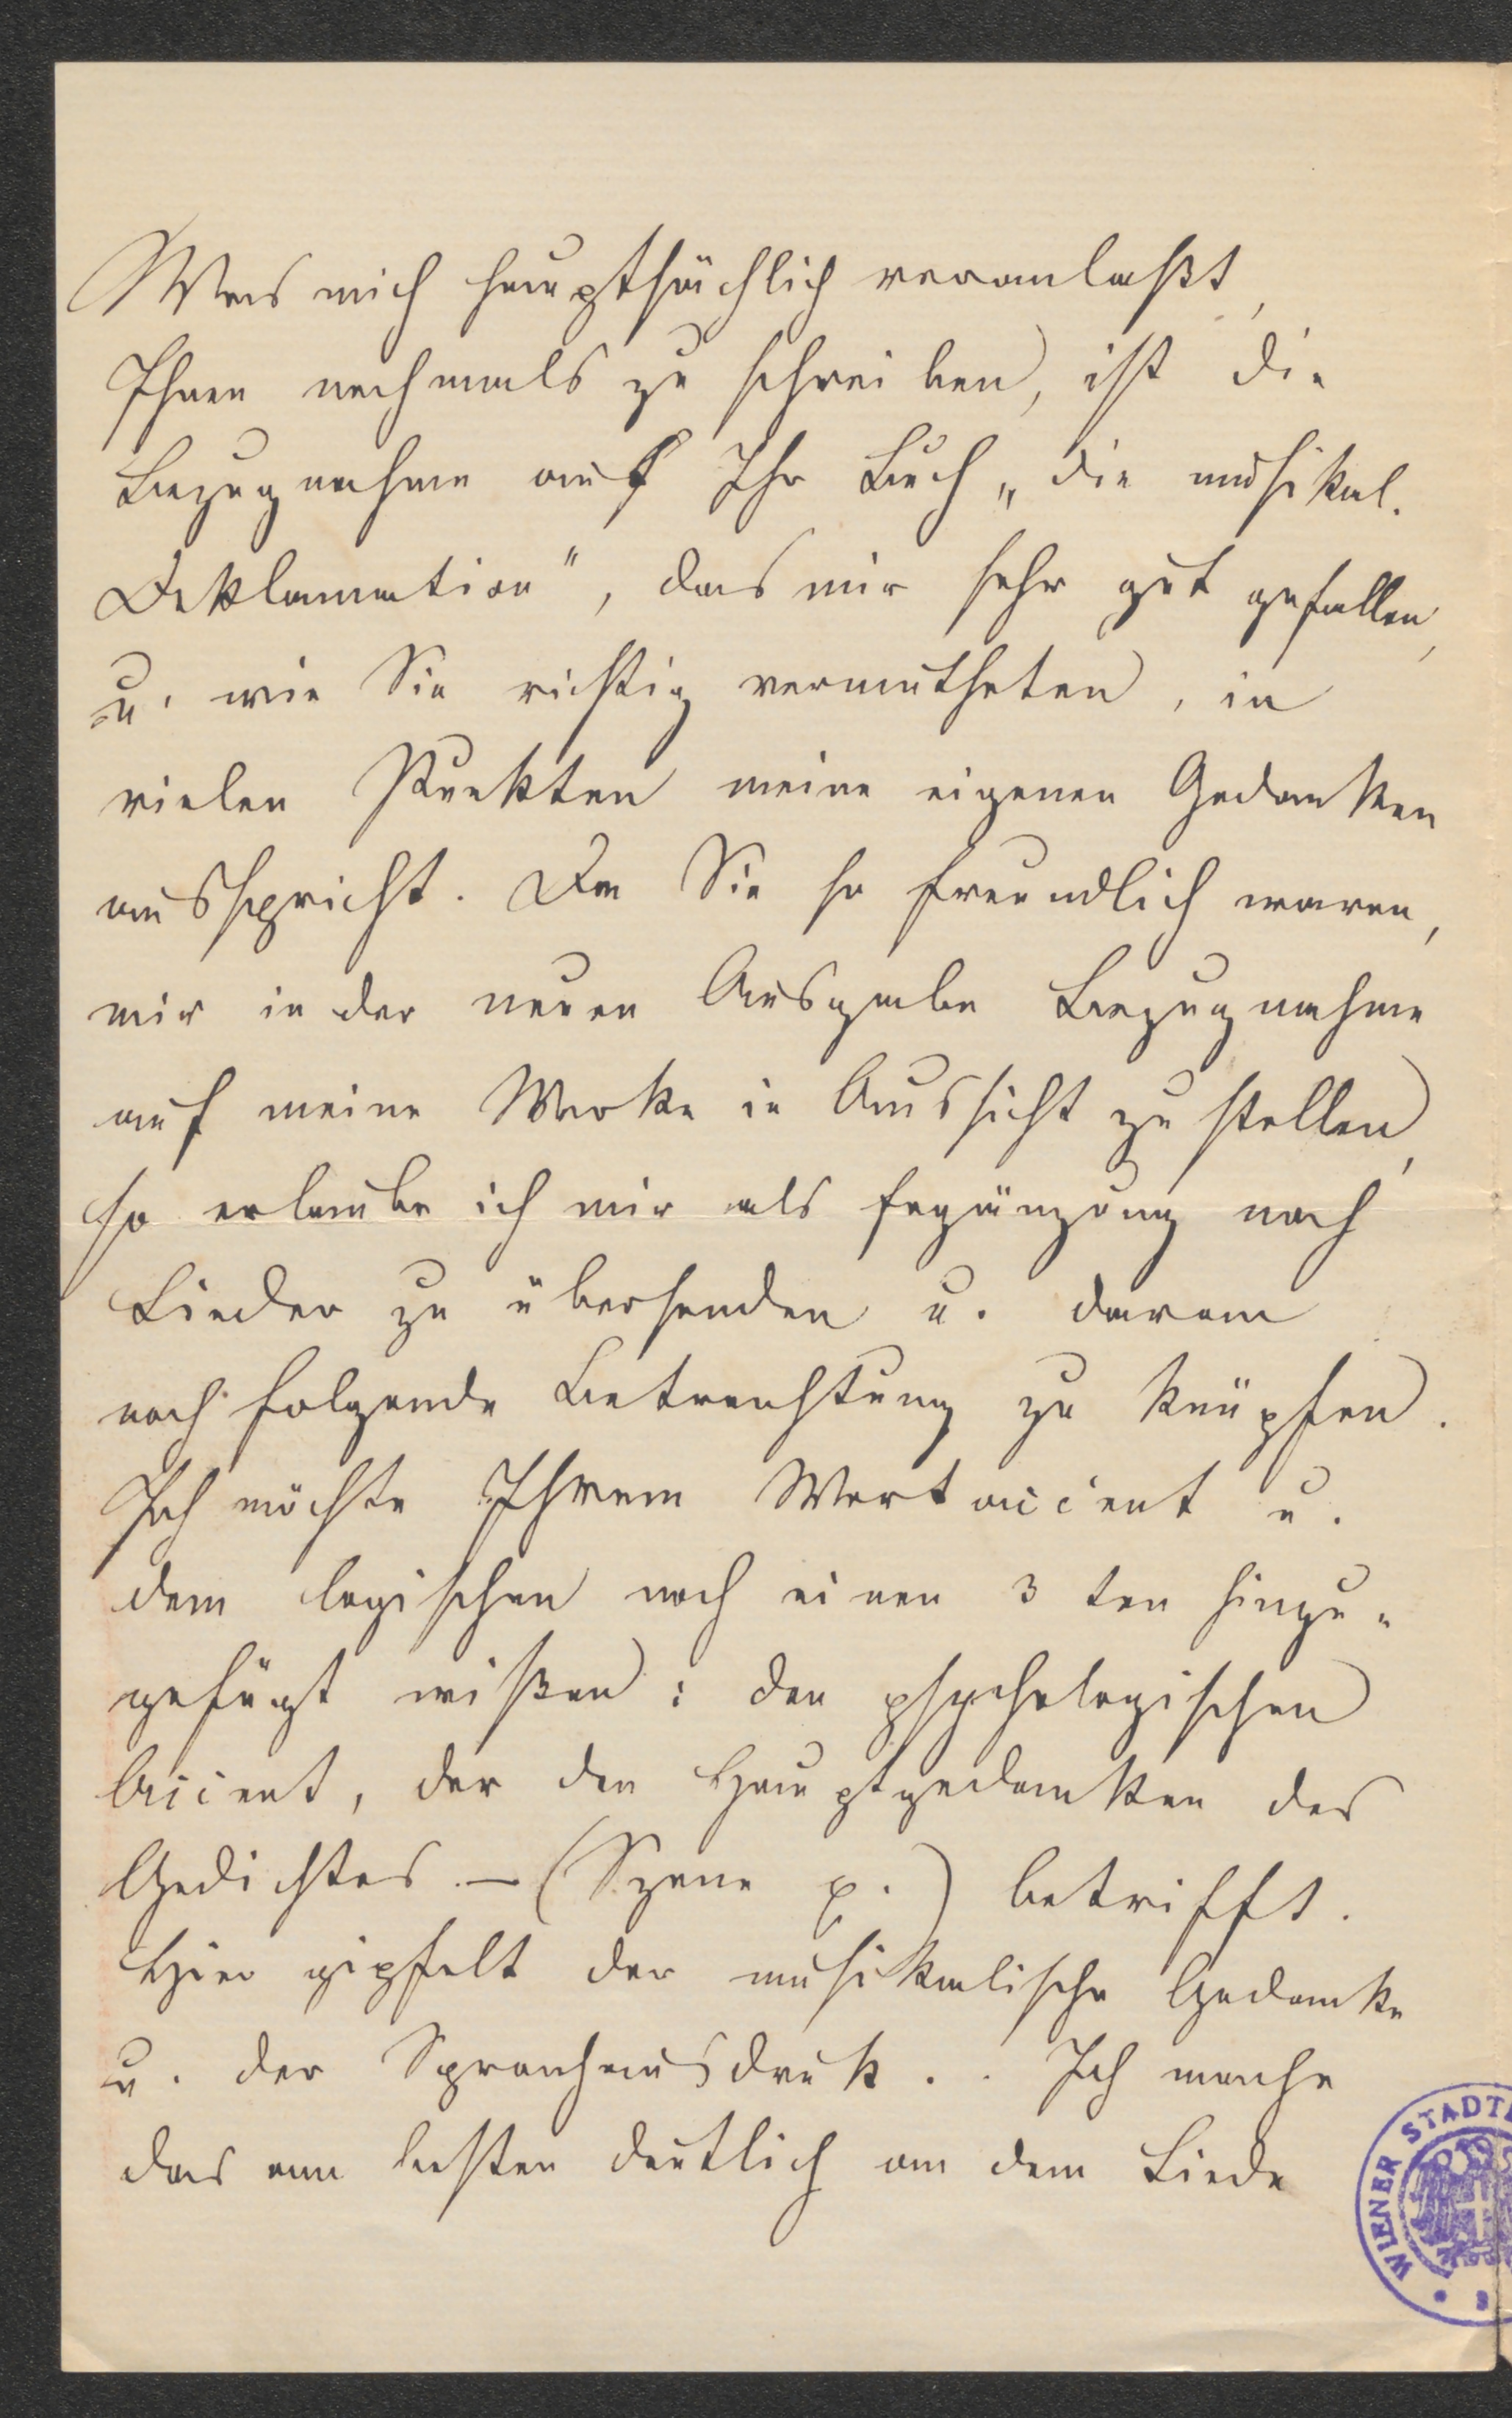 Was mich hauptsächlich veranlaßt,
Ihnen nochmals zu schreiben, ist die
Bezugnahme auf Ihr Buch „die musikal.
Deklamation", das mir sehr gut gefallen,
u. wie Sie richtig vermutheten, in
vielen Punkten meine eigenen Gedanken
ausspricht. Da Sie so freundlich waren,
mir in der neuen Ausgabe Bezugnahme
auf meine Werke in Aussicht zu stellen,
so erlaube ich mir als Ergänzung noch
Lieder zu übersenden u. daran
noch folgende Betrachtung zu knüpfen.
Ich möchte Ihrem Wortaccent u.
dem logischen noch einen 3ten hinzu-
gefügt wißen: den psychologischen
Accent, der den Hauptgedanken des
Gedichtes – (Szene p.) betrifft.
Hier gipfelt der musikalische Gedanke
u. der Sprachausdruk. . Ich mache
das am besten deutlich an dem Liede
WIENER STADT